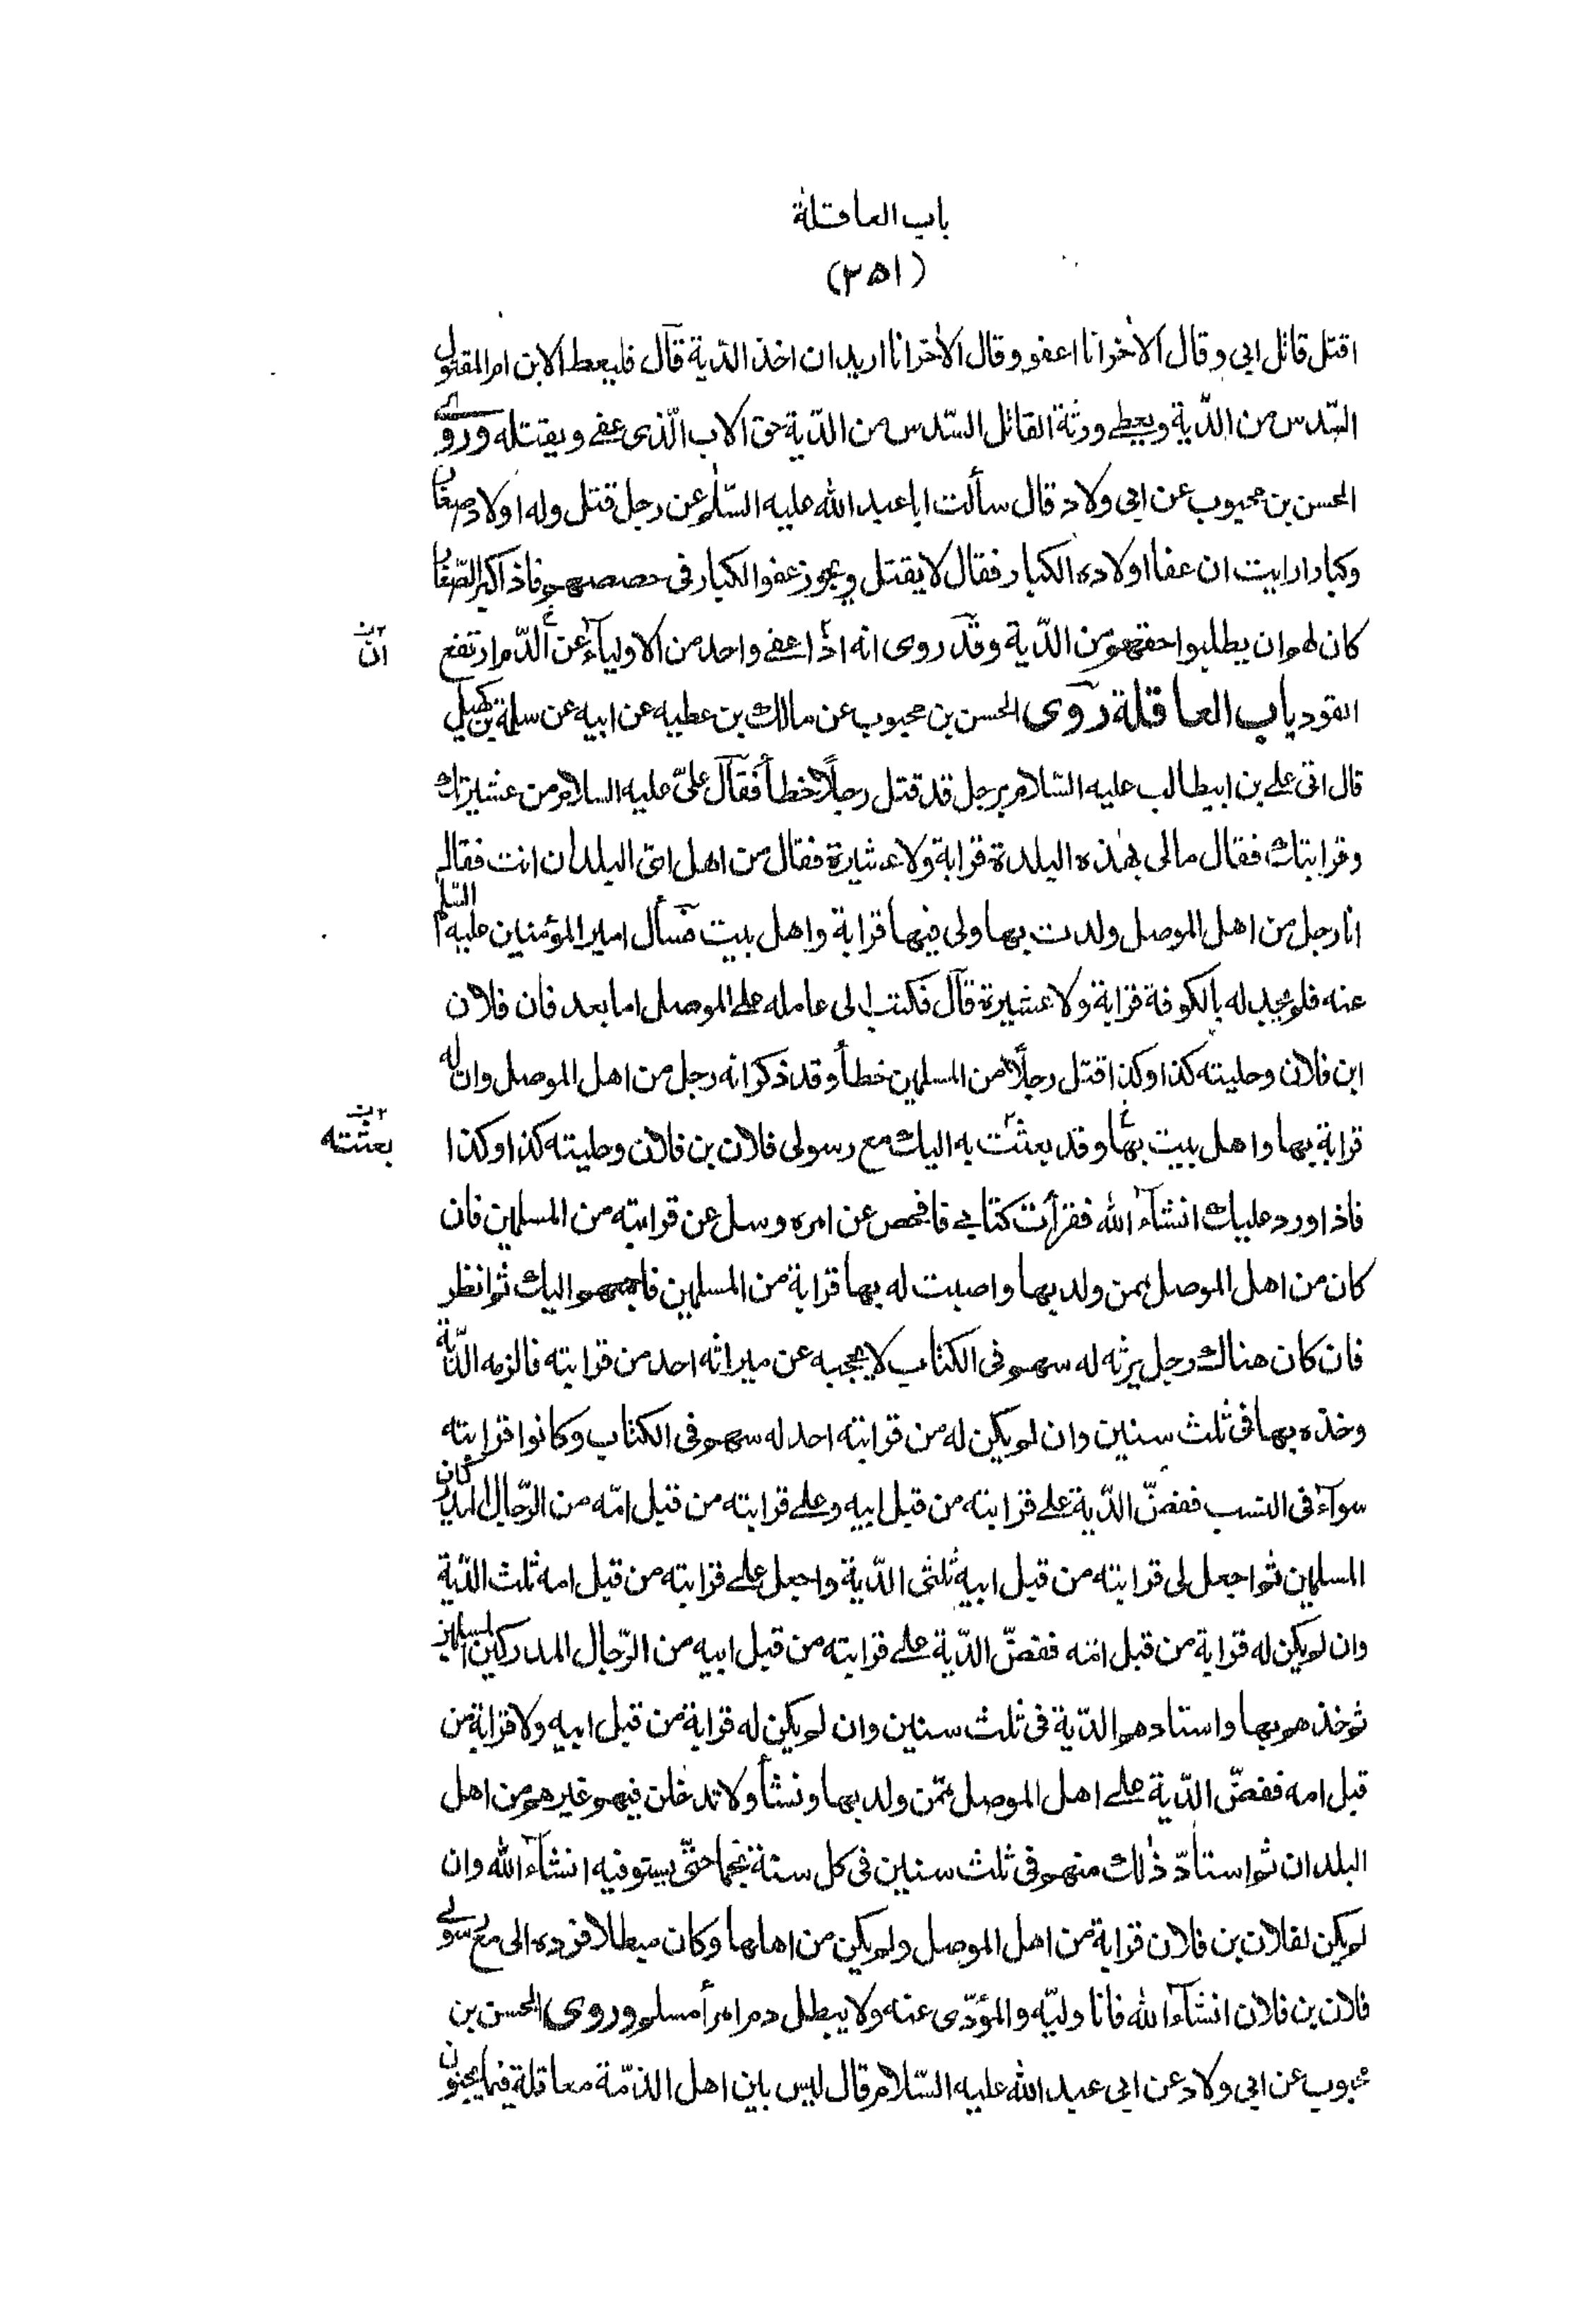 باب العاقلة
(٣٥١)
اقتل قاتل ابى وقال الاخر انا اعفو وقال الاخر انا اريد ان اخذ الدّية قال فليعط الابن ام المقتول
السّدس من الدّية ويعطى ورثة القاتل السّدس من الدّية حق الاب الّذى عفى ويقتله وروى
الحسن بن محبوب عن ابى ولاد قال سألت ابا عبد الله عليه السّلم عن رجل قتل وله اولاد صغار
وكبار ارايت ان عفا اولاده الكبار فقال لا يقتل ويجوز عفو الكبار فى حصصهم فاذا كبر الصّغار
كان لهم ان يطلبوا حقهم من الدّية وقد روى انه اذا عفى واحد من الاولياء عن الدّم ارتفع
ان
القود باب العاقلة روى الحسن بن محبوب عن مالك بن عطيه عن ابيه عن سلمة بن كهيل
قال اتى على بن ابيطالب عليه السّلام برجل قد قتل رجلاً خطأ فقال علىّ عليه السلام من عشيرتك
وقرابتك فقال مالى بهذه البلدة قرابة ولا عشيرة فقال من اهل اىّ البلدان انت فقال
انا رجل من اهل الموصل ولدت بها ولى فيها قرابة واهل بيت فسأل امير المؤمنين عليه السّلم
عنه فلم يجد له بالكوفة قرابة ولا عشيرة قال فكتب الى عامله على الموصل اما بعد فان فلان
ابن فلان وحليته كذا وكذا قتل رجلاً من المسلمين خطأ وقد ذكر انه رجل من اهل الموصل وان له
قرابة بها واهل بيت بها وقد بعثت به اليك مع رسولى فلان بن فلان وحليته كذا وكذا
بعثته
فاذا ورد عليك انشاء الله فقرأت كتابى فافحص عن امره وسل عن قرابته من المسلمين فان
كان من اهل الموصل ممن ولد بها واصبت له بها قرابة من المسلمين فاجمعهم اليك ثم انظر
فان كان هناك رجل يرثه له سهم فى الكتاب لا يحجبه عن ميراثه احد من قرابته فالزمه الدّية
وخذه بها فى ثلث سنين وان لم يكن له من قرابته احد له سهم فى الكتاب وكانوا قرابته
سواء فى النسب ففضّ الدّية على قرابته من قبل ابيه وعلى قرابته من قبل امّه من الرّجال المدركين
المسلمين ثم اجعل لى قرابته من قبل ابيه ثلثى الدّية واجعل على قرابته من قبل امه ثلث الدّية
وان لم يكن له قرابة من قبل امّه ففضّ الدّية على قرابته من قبل ابيه من الرّجال المدركين المسلمين
ثم خذهم بها واستادهم الدّية فى ثلث سنين وان لم يكن له قرابة من قبل ابيه ولا قرابة من
قبل امه ففضّ الدّية على اهل الموصل ممّن ولد بها ونشأ ولا تدخلن فيهم غيرهم من اهل
البلدان ثم استادّ ذلك منهم فى ثلث سنين فى كل سنة نجما حتّى يستوفيه انشاء الله وان
لم يكن لفلان بن فلان قرابة من اهل الموصل ولم يكن من اهلها وكان مبطلا فرده الى مع رسولى
فلان بن فلان انشاء الله فانا وليّه والمؤدّى عنه ولا يبطل دم امرأ مسلم وروى الحسن بن
محبوب عن ابى ولاد عن ابى عبد الله عليه السّلام قال ليس بين اهل الذمّة معاقلة فيما يجنون